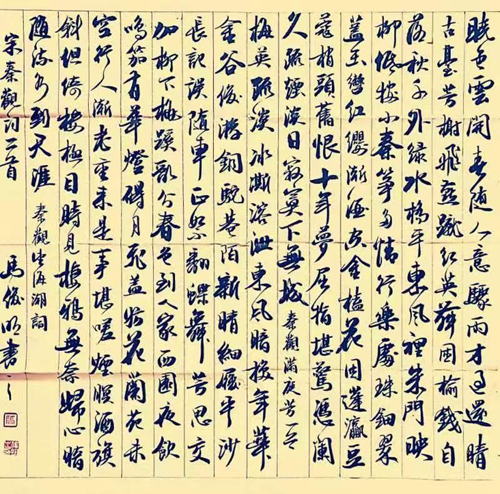 晓色雲開春随人意驟雨才过還晴
古臺芳榭飛燕蹴红英舞困榆錢自
落秋千外绿水橋平東風裡朱門映
柳低按小秦筝多情行樂處珠鈿翠
蓋玉轡红纓漸酒空金榼花困蓬瀛豆
蔻梢頭舊恨十年夢屈指堪驚憑闌
久疏煙淡日寂寞下蕪城 秦觀滿庭芳一首
梅英疏淡冰澌溶泄東風暗换年華
金谷俊游銅駝巷陌新晴细履平沙
長記誤随車正絮翻蝶舞芳思交
加柳下桃蹊亂分春色到人家西園夜飲
鳴笳有華燈碍月飛蓋妨花蘭苑未
空行人漸老重来是事堪嗟煙暝酒旗
斜但倚樓極目時見棲鴉無奈歸心暗
随流水到天涯 秦觀望海潮詞
宋秦觀詞二首 馬俊明書之